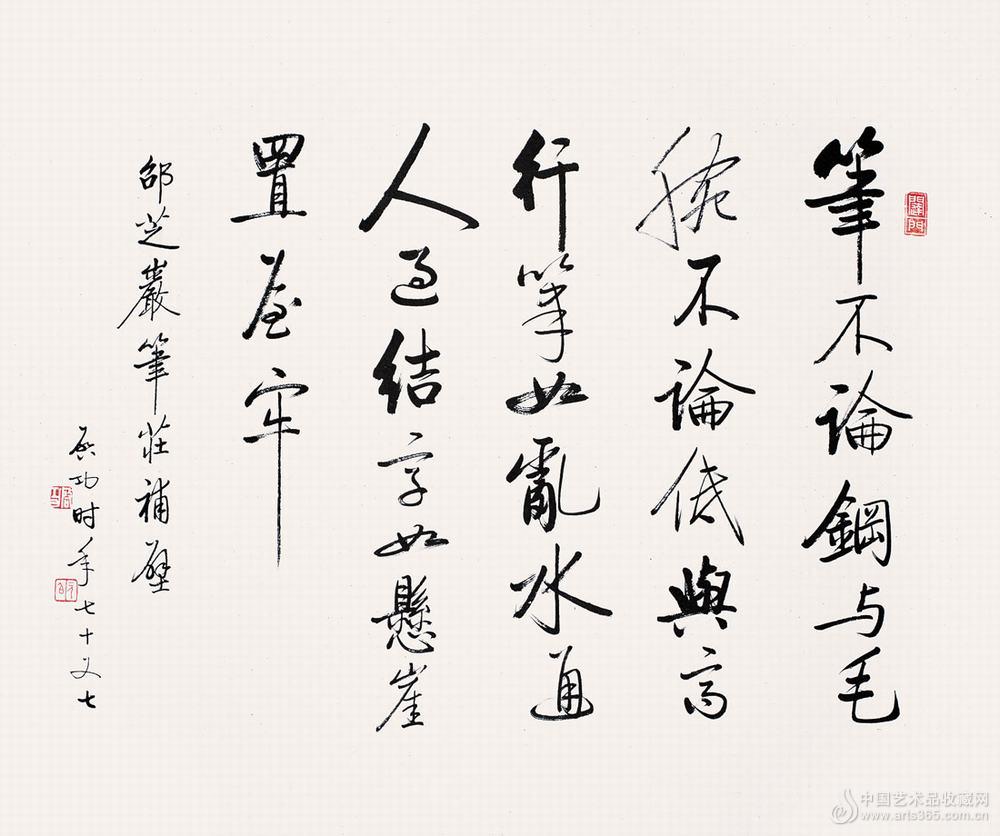 筆不論鋼与毛
腕不論低與高
行筆如亂水通
人過結字如懸崖
置屋牢
邵芝巖筆莊補壁
启功时年七十又七
中国艺术品收藏网
www.arts365.com.cn